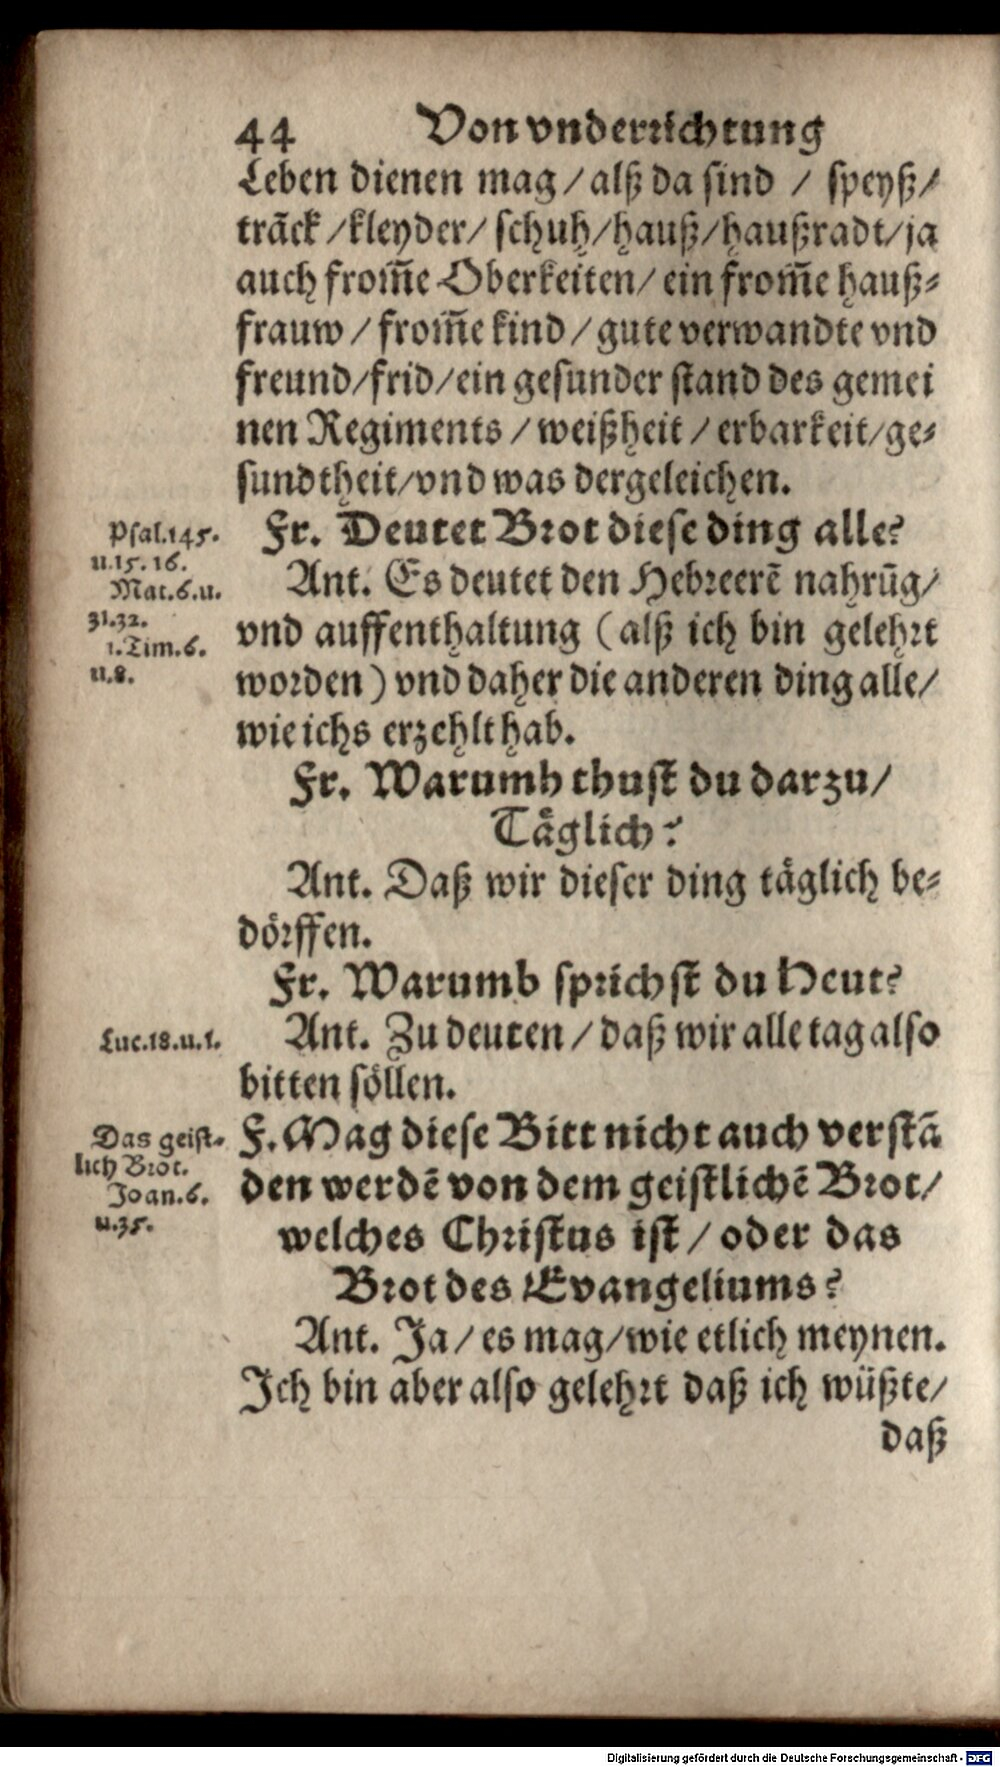 44 Von vnderrichtung
Leben dienen mag / alß da sind / speyß /
träck / kleyder / schuh / hauß / haußradt / ja
auch from̃e Oberkeiten / ein from̃e hauß⸗
frauw / from̃e kind / gute verwandte vnd
freund / frid / ein gesunder stand des gemei
nen Regiments / weißheit / erbarkeit / ge⸗
sundtheit / vnd was dergeleichen.
Fr. Deutet Brot diese ding alle?
Psal.145.
u.15.16.
Mat.6.u.
31.32.
1.Tim.6.
u.8.
Ant. Es deutet den Hebreerẽ nahrũg /
vnd auffenthaltung (alß ich bin gelehrt
worden) vnd daher die anderen ding alle /
wie ichs erzehlt hab.
Fr. Warumb thust du darzu /
Täglich?
Ant. Daß wir dieser ding täglich be⸗
dörffen.
Fr. Warumb sprichst du Heut?
Luc.18.u.1.
Ant. Zu deuten / daß wir alle tag also
bitten söllen.
Das geist⸗
lich Brot.
Joan.6.
u.35.
F. Mag diese Bitt nicht auch verstã
den werdẽ von dem geistlichẽ Brot /
welches Christus ist / oder das
Brot des Evangeliums?
Ant. Ja / es mag / wie etlich meynen.
Ich bin aber also gelehrt daß ich wüßte /
daß
Digitalisierung gefördert durch die Deutsche Forschungsgemeinschaft - DFG